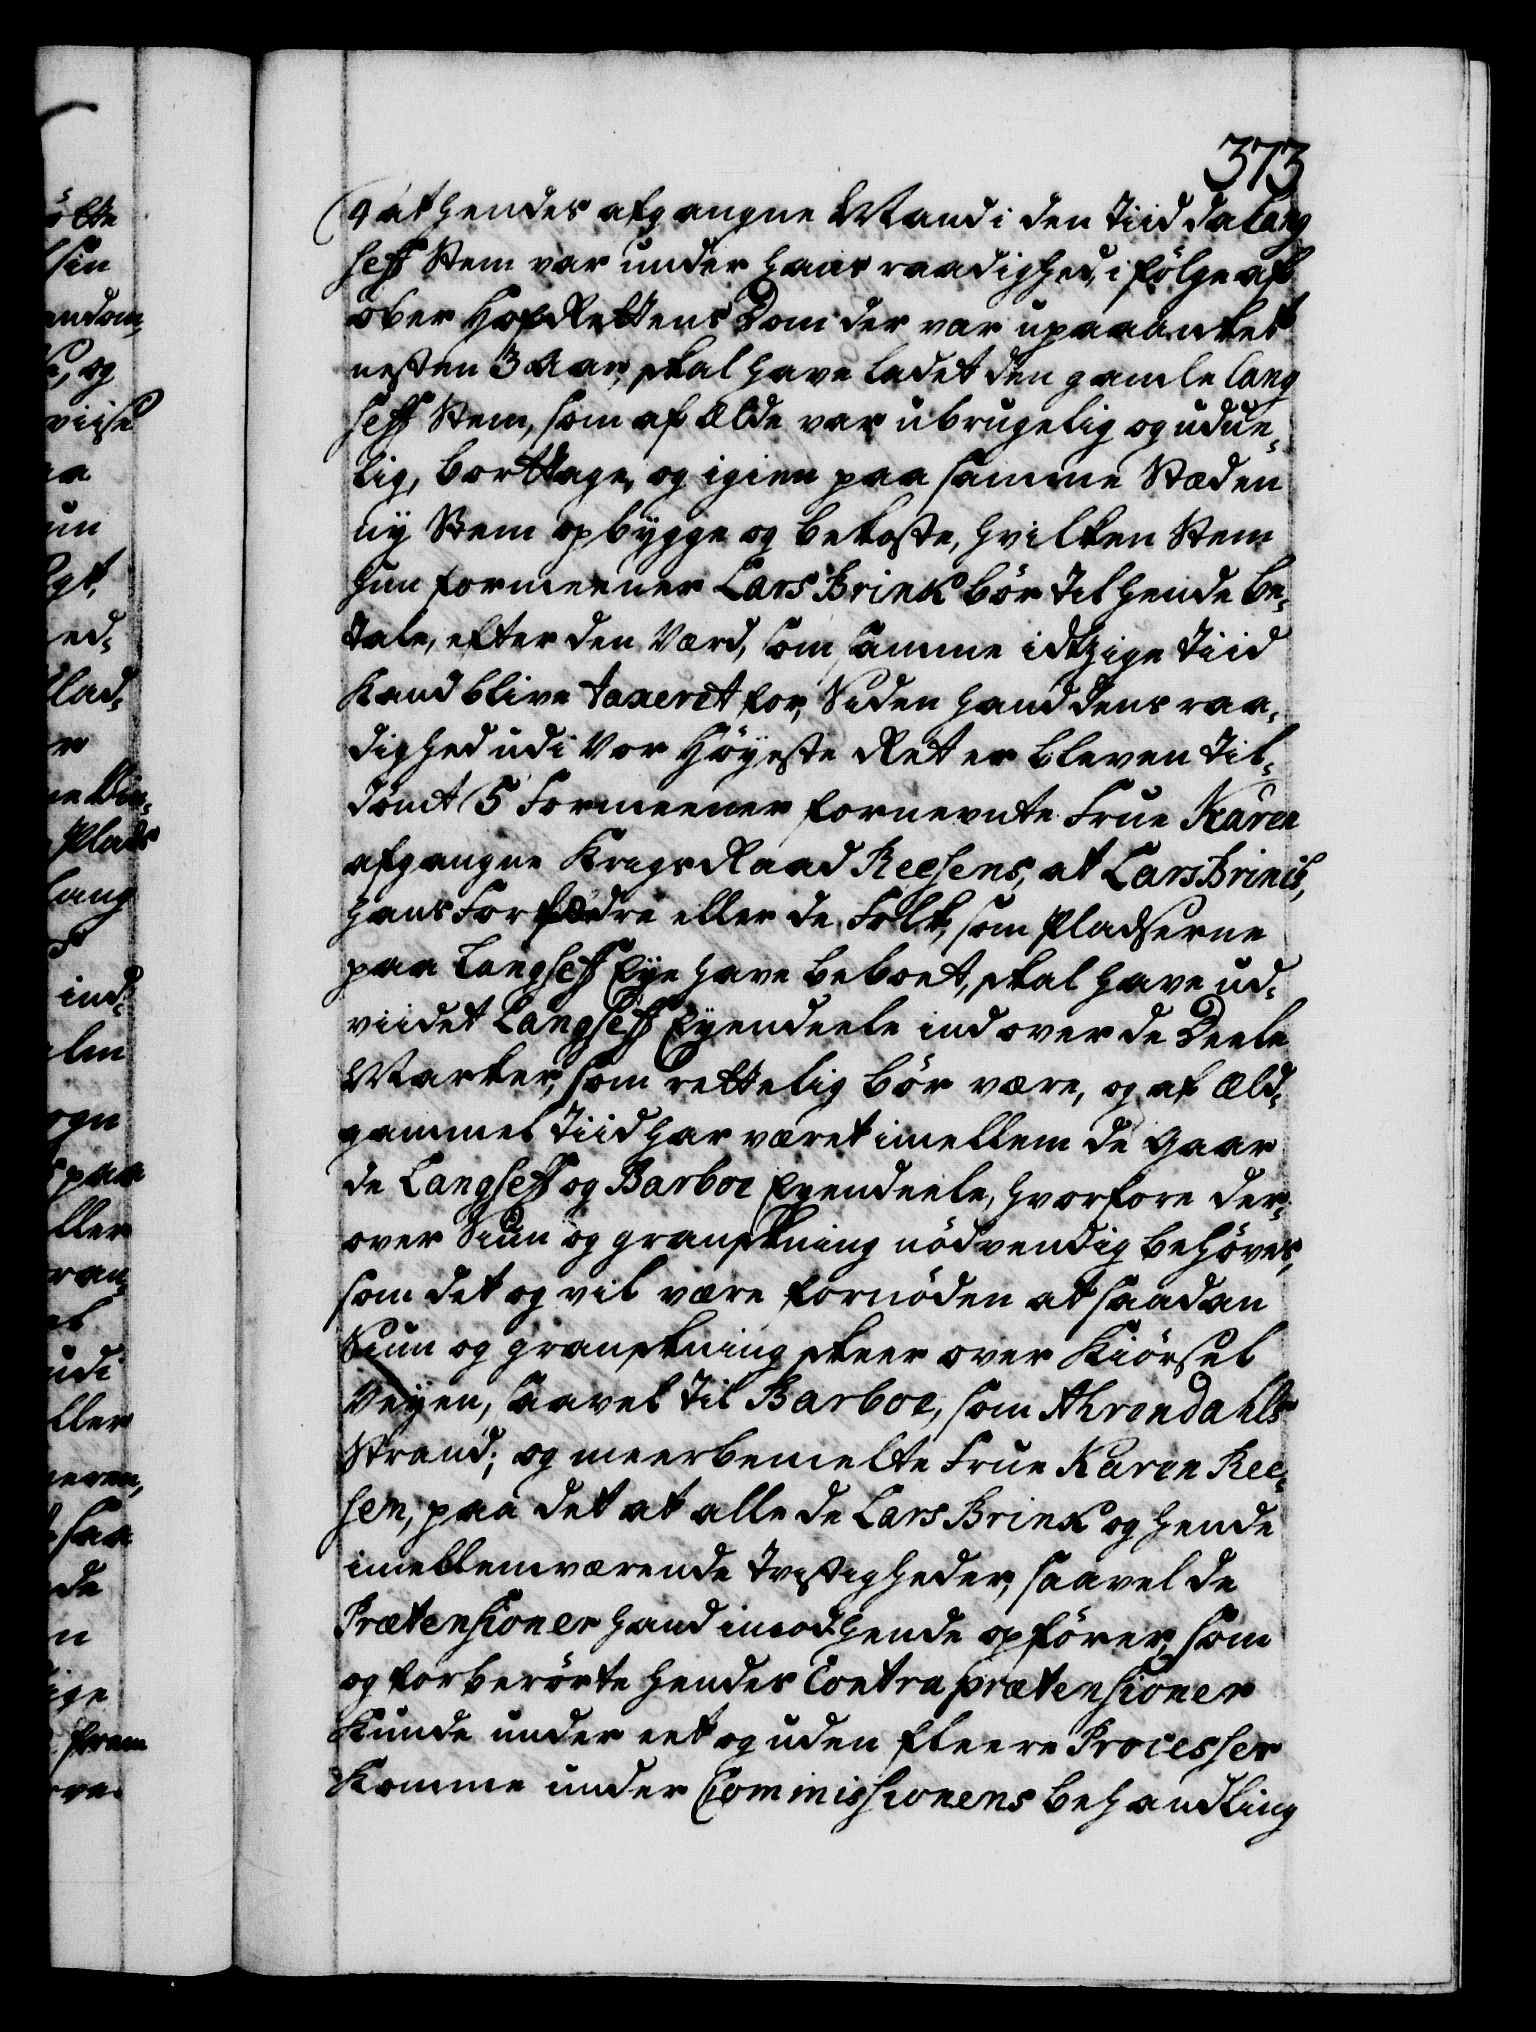 373
(4 at hendes afgangne Mand i den Tiid da Lang
seff Stem var under hans raadighed, i følge af
ober Hof Rettens Dom der var upaaanket
nesten 3 Aar, skal have ladet den gamle Lang
seff Stem, som af Ælde var ubrugelig og udue-
lig, borttage, og igien paa samme Stæden
nÿ Stem opbÿgge og bekoste, hvilken Stem
hun formeener Lars Brink bör til hende be-
tale, efter den Værd, som samme idtzige Tiid
Kand blive taxeret for, Siden hand dens raa-
dighed udi Vor Höÿeste Ret er bleven til-
dömt (5 Formeener fornevnte Frue Karen
afgangne Krigs Raad Reesens, at Lars Brinck,
hans Forfædre eller de Folk, som Pladserne
paa Langseff Eÿe have beboet, skal have ud-
viidet Langseff Eÿendeele ind over de Deele
Marker, som rettelig bör være, og af Æld-
gammel Tiid har været imellem de Gaar
de Langseff og Barboe Eÿendeele, hvorfore der-
over Siun og granskning nödvendig behöves,
som det og vil være fornöden at saadan
Siun og granskning skeer over Kiörsel
Veÿen, saavel til Barboe, som Ahrendahls
Strand; og meerbemelte Frue Karen Ree-
sen, paa det at alle de Lars Brink og hende
imellemværende tvistigheder, saavel de
Prætensioner hand imod hende opförer, som
og forberörte hendes Contraprætensioner
Kunde under eet og uden fleere Processer
Komme under Commissionens behandling
ötte
sin
endom,
og
viise
aa
un
ed-
lad-
er
Plads
Lang
ind-
len
ogn
paa
ller
ran-
udi
ller
saa
de
n
ige
frem